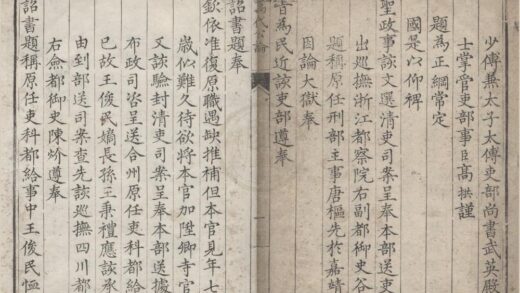 少傅兼太子太傅吏部尚書武英殿
士掌管吏部事臣高拱謹
題為正綱常定
國是以仰裨
聖政事該文選清吏司案呈奉本部送吏
出巡撫浙江都察院右副都御史谷
題稱原任刑部主事唐樞先於嘉靖
因論大獄奉
旨為民近該吏部遵奉
代公論
詔書題奉
欽依准復原職遇缺推補但本官見年七
歲似難久待欲將本官加陞卿寺官
又該驗封清吏司案呈奉本部送據
布政司咨呈送合州原任吏科都給
已故王俊民嫡長孫王秉禮應該承
由到部送司案查先該巡撫四川都
右僉都御史陳炌遵奉
詔書題稱原任吏科都給事中王俊民恤